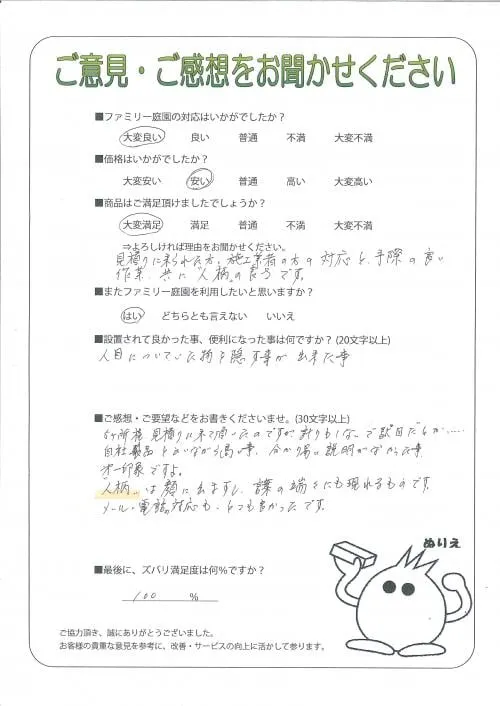 ご意見・ご感想をお聞かせください
■ファミリー庭園の対応はいかがでしたか？
大変良い 良い 普通 不満 大変不満
■価格はいかがでしたか？
大変安い 安い 普通 高い 大変高い
■商品はご満足頂けましたでしょうか？
大変満足 満足 普通 不満 大変不満
⇒よろしければ理由をお聞かせください。
見積りに来られた方、施工業者の方の対応と、手際の良い
作業、共に"人柄"の良さです。
■またファミリー庭園を利用したいと思いますか？
はい どちらとも言えない いいえ
■設置されて良かった事、便利になった事は何ですか？(20文字以上)
人目についていた物を隠す事が出来た事
■ご感想・ご要望などをお書きくださいませ。(30文字以上)
5ヶ所程見積りに来て頂いたのですが
自社製品と 高い事、分かり易い説明がなかった事
オ一印象ですよ。
"人柄"は顔に出ますし、言葉の端々にも現れるものです。
メール・電話の対応も、とても良かったです。
ぬりえ
■最後に、ズバリ満足度は何%ですか？
100 %
ご協力頂き、誠にありがとうございました。
お客様の貴重な意見を参考に、改善・サービスの向上に活かして参ります。